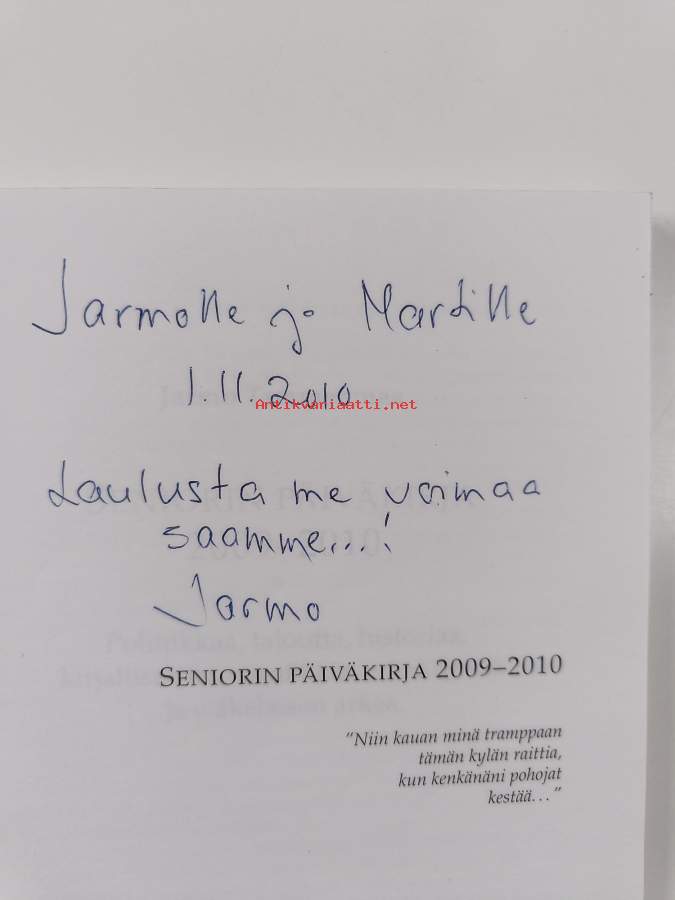 Jarmolle ja Martille
1.11.2010
Antikvariaatti.net
Laulusta me voimaa
saamme...!
Jarmo
SENIORIN PÄIVÄKIRJA 2009–2010
"Niin kauan minä tramppaan
tämän kylän raittia,
kun kenkänäni pohojat
kestää..."